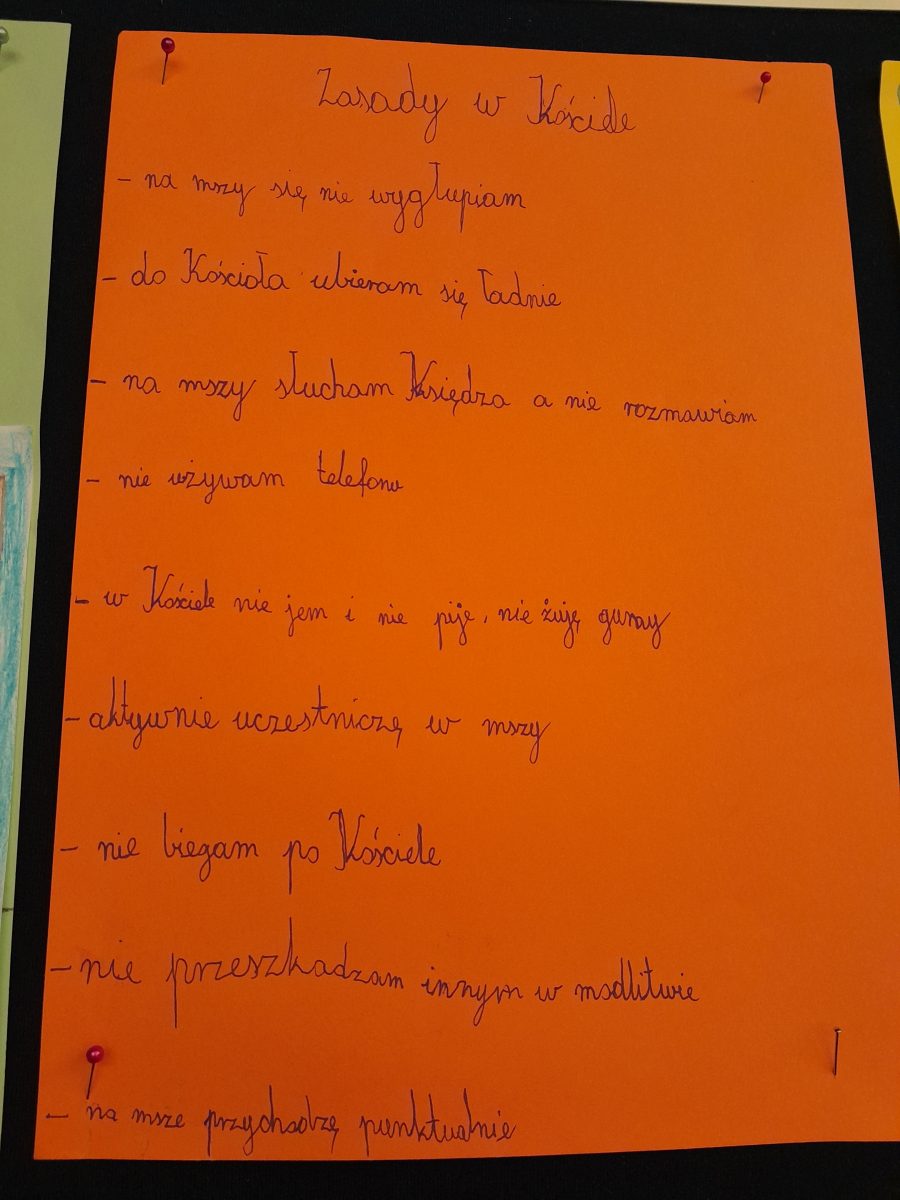 Zasady w Kościele
- na mszy się nie wygłupiam
- do Kościoła ubieram się ładnie
- na mszy słucham Księdza a nie rozmawiam
- nie używam telefonu
- w Kościele nie jem i nie piję, nie żuję gumy
- aktywnie uczestniczę w mszy
- nie biegam po Kościele
- nie przeszkadzam innym w modlitwie
- na msze przychodzę punktualnie